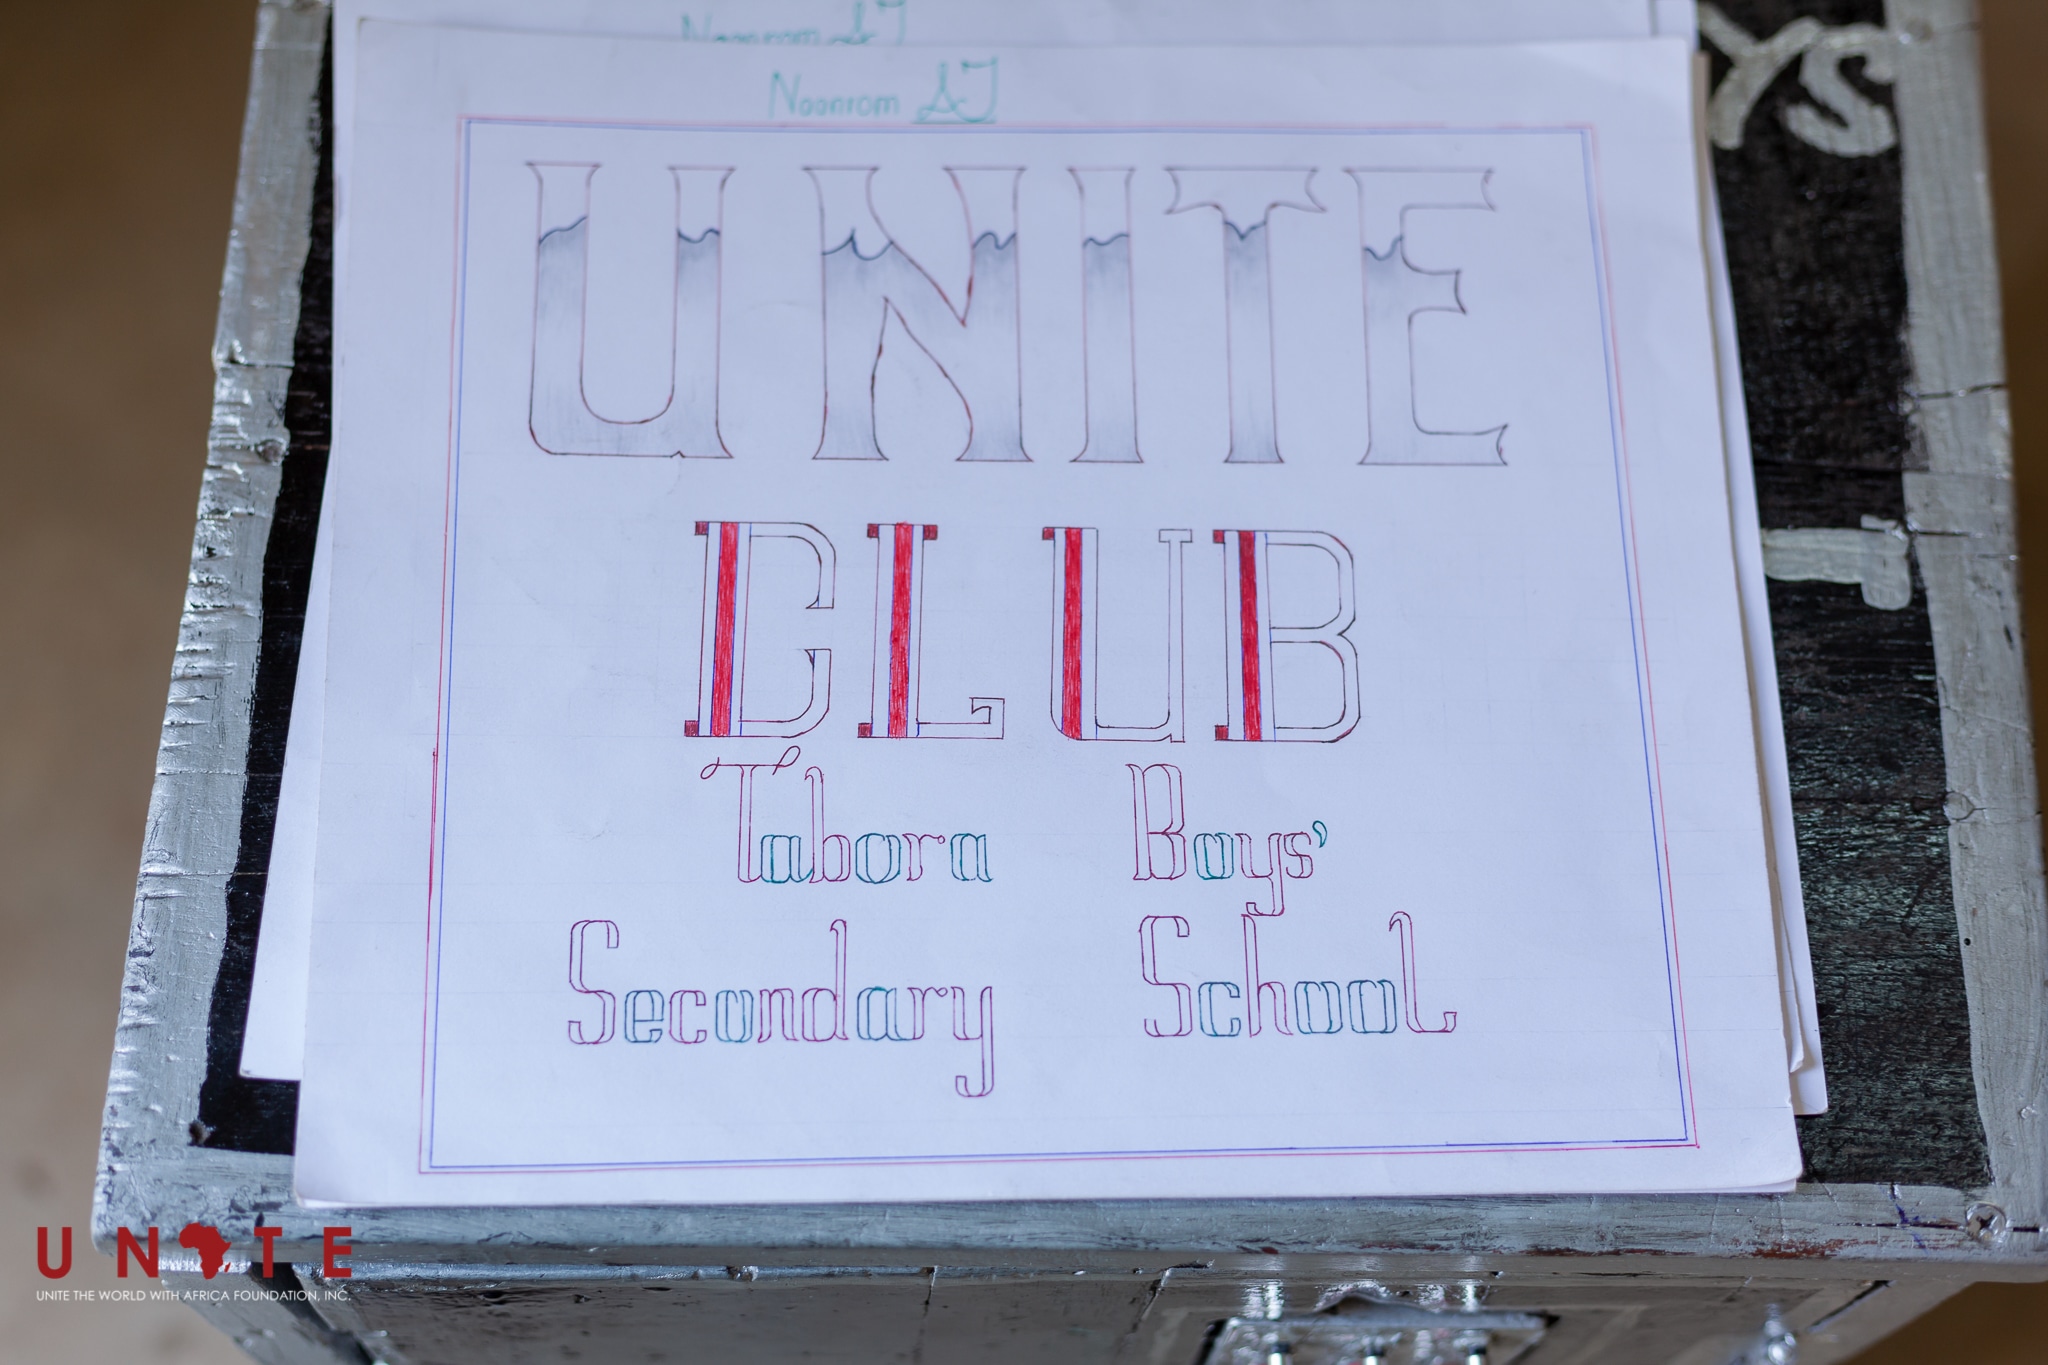 Naanrom &J
UNITE
CLUB
Tabora Boys'
Secondary School
YS
UNITE
UNITE THE WORLD WITH AFRICA FOUNDATION, INC.